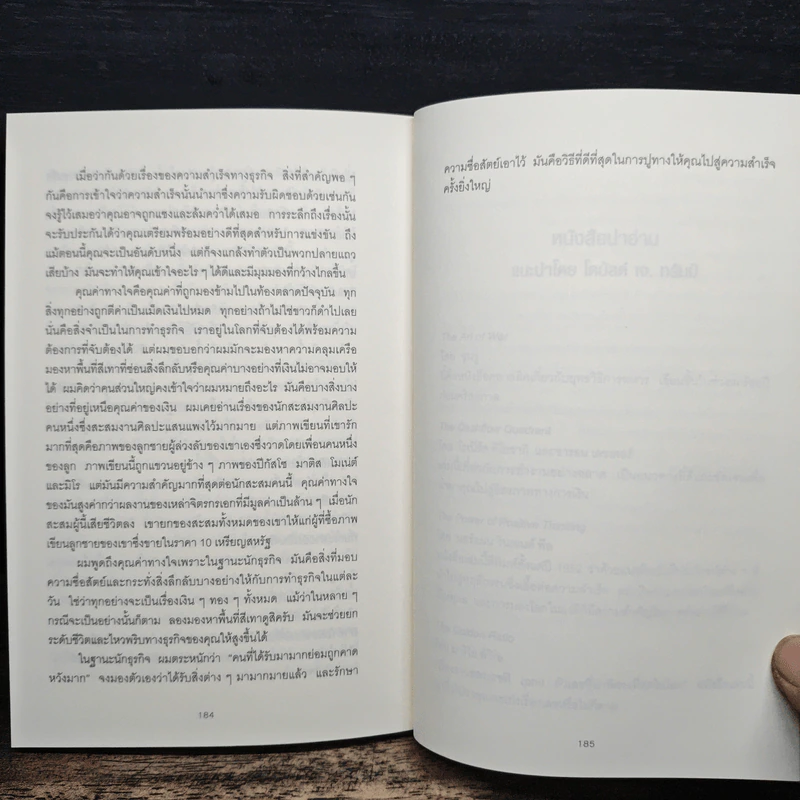 เมื่อว่ากันด้วยเรื่องของความสำเร็จทางธุรกิจ สิ่งที่สำคัญพอ ๆ
กันคือการเข้าใจว่าความสำเร็จนั้นนำมาซึ่งความรับผิดชอบด้วยเช่นกัน
จงรู้ไว้เสมอว่าคุณอาจถูกแซงและล้มคว่ำได้เสมอ การระลึกถึงเรื่องนั้น
จะรับประกันได้ว่าคุณเตรียมพร้อมอย่างดีที่สุดสำหรับการแข่งขัน ถึง
แม้ตอนนี้คุณจะเป็นอันดับหนึ่ง แต่ก็จงแกล้งทำตัวเป็นพวกปลายแถว
เสียบ้าง มันจะทำให้คุณเข้าใจอะไร ๆ ได้ดีและมีมุมมองที่กว้างไกลขึ้น
คุณค่าทางใจคือคุณค่าที่ถูกมองข้ามไปในท้องตลาดปัจจุบัน ทุก
สิ่งทุกอย่างถูกตีค่าเป็นเม็ดเงินไปหมด ทุกอย่างถ้าไม่ใช่ขาวก็ดำไปเลย
นั่นคือสิ่งจำเป็นในการทำธุรกิจ เราอยู่ในโลกที่จับต้องได้พร้อมความ
ต้องการที่จับต้องได้ แต่ผมขอบอกว่าผมมักจะมองหาความคลุมเครือ
มองหาพื้นที่สีเทาที่ซ่อนสิ่งลึกลับหรือคุณค่าบางอย่างที่เงินไม่อาจมอบให้
ได้ ผมคิดว่าคนส่วนใหญ่คงเข้าใจว่าผมหมายถึงอะไร มันคือบางสิ่งบาง
อย่างที่อยู่เหนือคุณค่าของเงิน ผมเคยอ่านเรื่องของนักสะสมงานศิลปะ
คนหนึ่งซึ่งสะสมงานศิลปะแสนแพงไว้มากมาย แต่ภาพเขียนที่เขารัก
มากที่สุดคือภาพของลูกชายผู้ล่วงลับของเขาเองซึ่งวาดโดยเพื่อนคนหนึ่ง
ของลูก ภาพเขียนนี้ถูกแขวนอยู่ข้าง ๆ ภาพของปิกัสโซ มาติส โมเน่ต์
และมิโร แต่มันมีความสำคัญมากที่สุดต่อนักสะสมคนนี้ คุณค่าทางใจ
ของมันสูงค่ากว่าผลงานของเหล่าจิตรกรเอกที่มีมูลค่าเป็นล้าน ๆ เมื่อนัก
สะสมผู้นี้เสียชีวิตลง เขายกของสะสมทั้งหมดของเขาให้แก่ผู้ที่ซื้อภาพ
เขียนลูกชายของเขาซึ่งขายในราคา 10 เหรียญสหรัฐ
ผมพูดถึงคุณค่าทางใจเพราะในฐานะนักธุรกิจ มันคือสิ่งที่มอบ
ความซื่อสัตย์และกระทั่งสิ่งลึกลับบางอย่างให้กับการทำธุรกิจในแต่ละ
วัน ใช่ว่าทุกอย่างจะเป็นเรื่องเงิน ๆ ทอง ๆ ทั้งหมด แม้ว่าในหลาย ๆ
กรณีจะเป็นอย่างนั้นก็ตาม ลองมองหาพื้นที่สีเทาดูสิครับ มันจะช่วยยก
ระดับชีวิตและไหวพริบทางธุรกิจของคุณให้สูงขึ้นได้
ในฐานะนักธุรกิจ ผมตระหนักว่า "คนที่ได้รับมามากย่อมถูกคาด
หวังมาก" จงมองตัวเองว่าได้รับสิ่งต่าง ๆ มามากมายแล้ว และรักษา
184
ความซื่อสัตย์เอาไว้ มันคือวิธีที่ดีที่สุดในการปูทางให้คุณไปสู่ความสำเร็จ
ครั้งยิ่งใหญ่
185